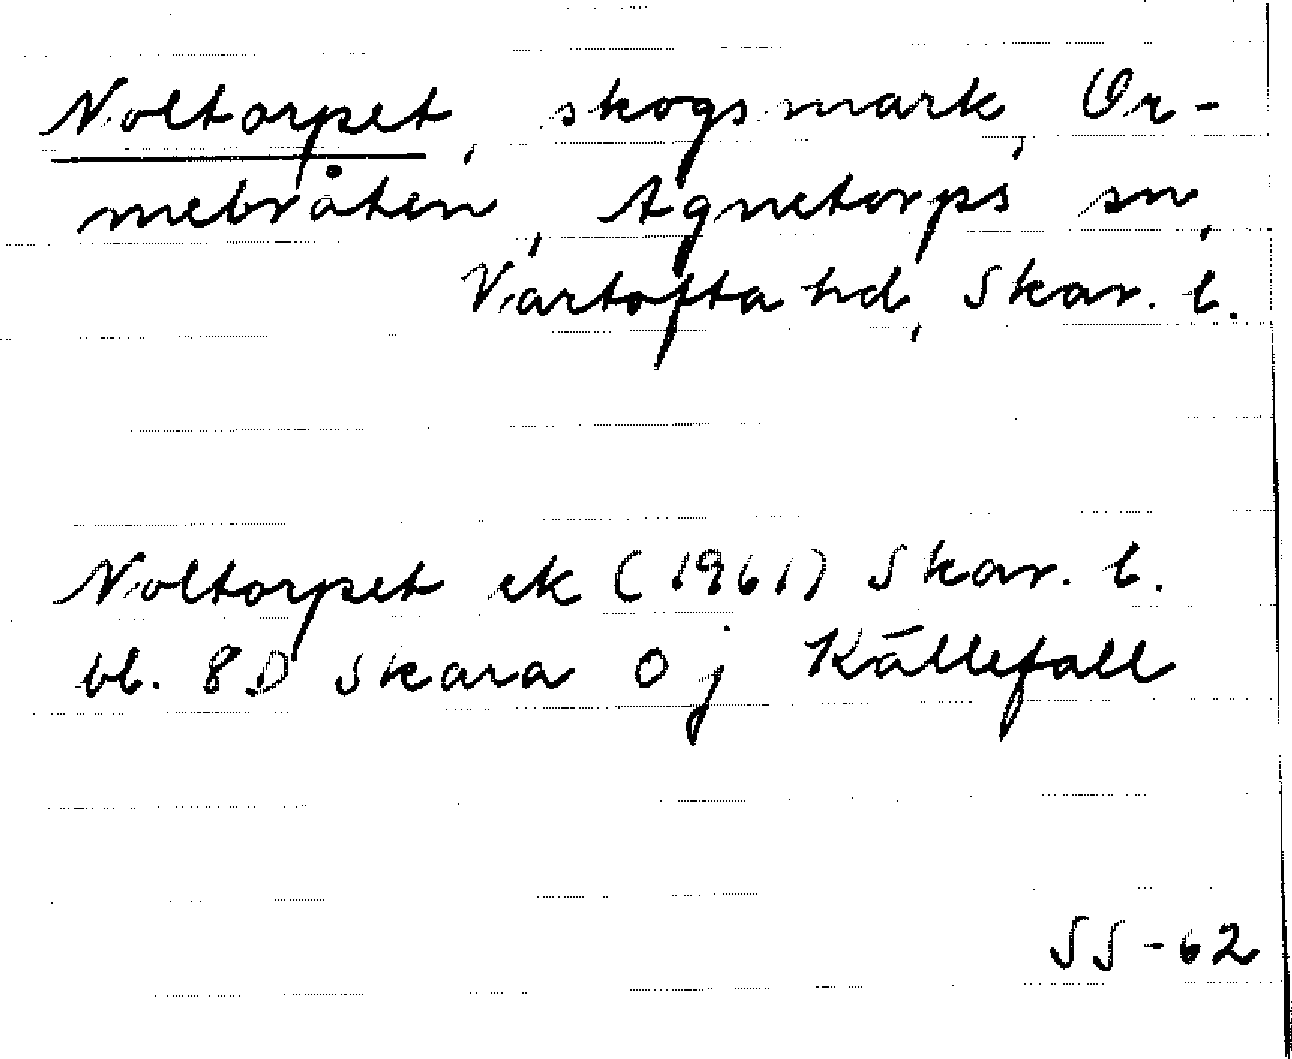 Noltorpet, skogsmark, Or-
mebråten, Agnetorps sn,
Vartofta hd, Skar. l.
Noltorpet ek (1961) Skar. l.
bl. 8D Skara 0j Källefall
SS-62